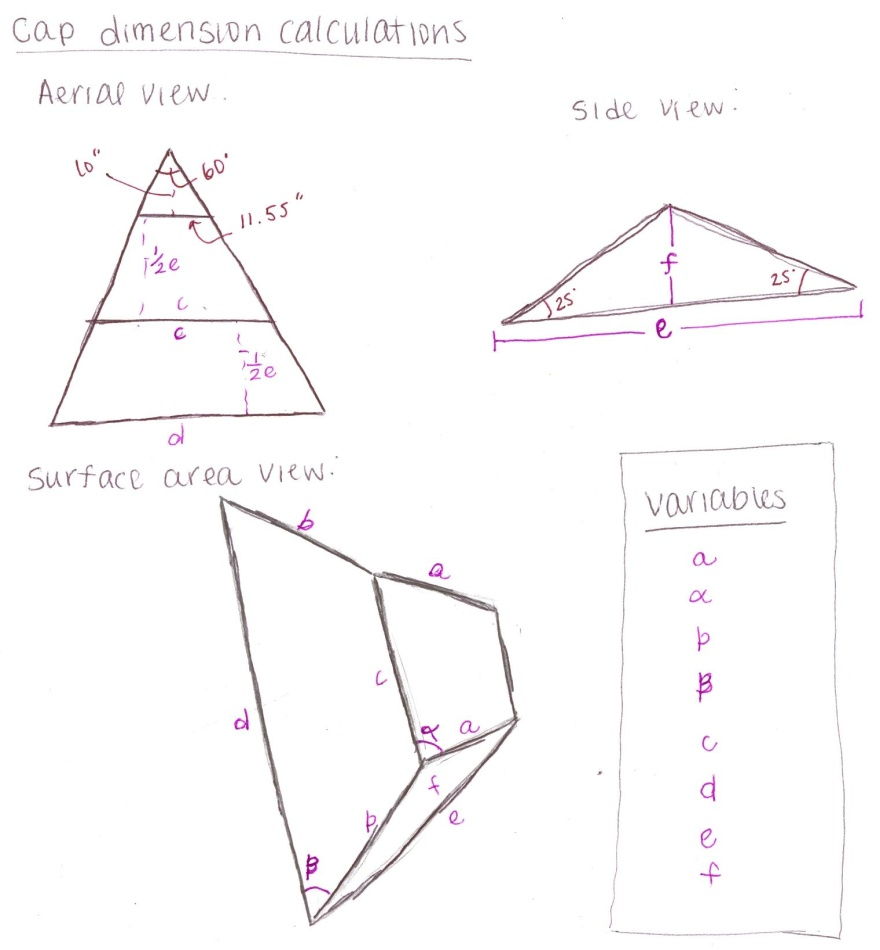 Cap dimension calculations
Aerial view.
side view:
10"
60°
11.55"
½e
c
c
½e
d
f
25°
25°
e
surface area view:
b
a
c
d
α
a
f
b
e
β
variables
a
α
b
β
c
d
e
f